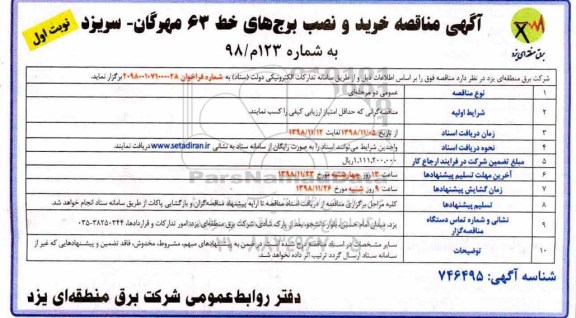 آگهی مناقصه خرید و نصب برج‌های خط ۶۳ مهرگان- سریزد
نوبت اول
به شماره ۱۲۳م/۹۸
برق منطقه‌ای یزد
شرکت برق منطقه‌ای یزد در نظر دارد مناقصه فوق را بر اساس اطلاعات ذیل و از طریق سامانه تدارکات الکترونیکی دولت (ستاد) به شماره فراخوان ۲۰۹۸۰۰۱۰۷۱۰۰۰۰۲۸ برگزار نماید.
۱ نوع مناقصه عمومی دو مرحله‌ای
۲ شرایط اولیه مناقصه‌گرانی که حداقل امتیاز ارزیابی کیفی را کسب نمایند.
۳ زمان دریافت اسناد از تاریخ ۱۳۹۸/۱۱/۰۵ لغایت ۱۳۹۸/۱۱/۱۲
۴ نحوه دریافت اسناد واجدین شرایط می‌توانند اسناد را به صورت رایگان از سامانه ستاد به نشانی www.setadiran.ir دریافت نمایند.
۵ مبلغ تضمین شرکت در فرایند ارجاع کار ۱,۱۱۱,۲۰۰,۰۰۰ریال
۶ آخرین مهلت تسلیم پیشنهادها ساعت ۱۳ روز چهارشنبه مورخ ۱۳۹۸/۱۱/۲۳
۷ زمان گشایش پیشنهادها ساعت ۹ روز شنبه مورخ ۱۳۹۸/۱۱/۲۶
۸ تسلیم پیشنهادها کلیه مراحل برگزاری مناقصه از دریافت اسناد مناقصه تا ارایه پیشنهاد مناقصه‌گران و بازگشایی پاکات از طریق سامانه ستاد انجام خواهد شد.
۹ نشانی و شماره تماس دستگاه مناقصه‌گزار یزد، میدان امام حسین، بلوار دانشجو، بعد از پارک شادی، شرکت برق منطقه‌ای یزد، امور تدارکات و قراردادها، ۰۳۵-۳۸۲۵۰۳۴۴
۱۰ توضیحات سایر مشخصات در اسناد مناقصه درج شده است در ضمن به پیشنهادهای مبهم، مشروط، مخدوش، فاقد تضمین و پیشنهادهایی که غیر از سامانه ستاد ارسال گردد ترتیب اثر داده نخواهد شد.
شناسه آگهی: ۷۴۶۴۹۵
دفتر روابط‌عمومی شرکت برق منطقه‌ای یزد